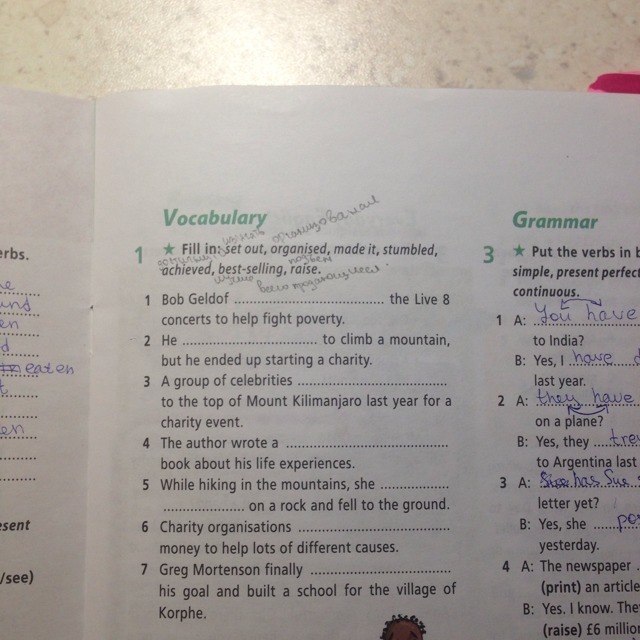 erbs.
eaten
esent
/see)
Vocabulary
1 ★ Fill in: set out, organised, made it, stumbled,
achieved, best-selling, raise.
1 Bob Geldof .......................................... the Live 8
concerts to help fight poverty.
2 He ...................................... to climb a mountain,
but he ended up starting a charity.
3 A group of celebrities ..........................................
to the top of Mount Kilimanjaro last year for a
charity event.
4 The author wrote a ..............................................
book about his life experiences.
5 While hiking in the mountains, she ....................
....................... on a rock and fell to the ground.
6 Charity organisations ..........................................
money to help lots of different causes.
7 Greg Mortenson finally ........................................
his goal and built a school for the village of
Korphe.
Grammar
3 ★ Put the verbs in b
simple, present perfect
continuous.
1 A: You have
to India?
B: Yes, I have
last year.
2 A: they have
on a plane?
B: Yes, they
to Argentina last
3 A: has Sue
letter yet?
B: Yes, she
yesterday.
4 A: The newspaper
(print) an article
B: Yes. I know. The
(raise) £6 millio